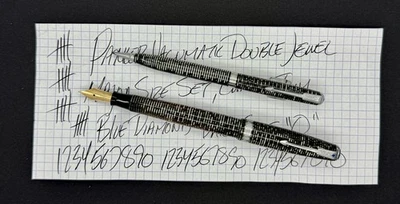 Parker Vacumatic Double Jewel
Major Size Set,
Blue Diamond
1234567890 1234567890 1234567890